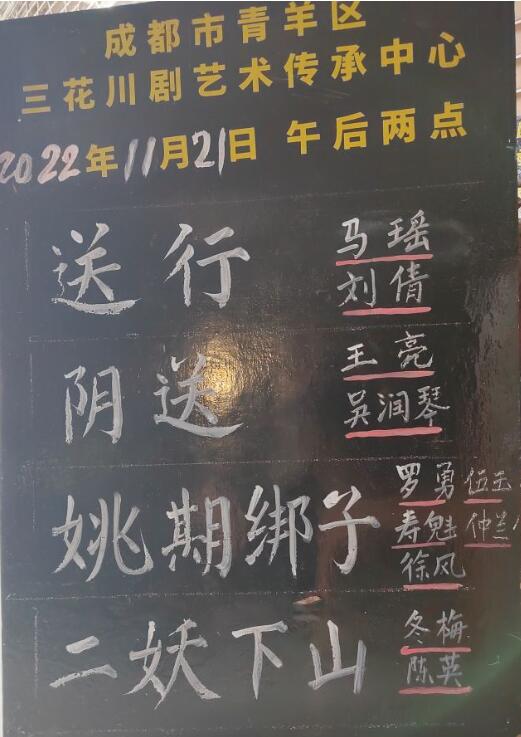 成都市青羊区
三花川剧艺术传承中心
2022年11月21日 午后两点
送行
马瑶
刘倩
阴送
王亮
吴润琴
姚期绑子
罗勇 伍玉
寿魁 仲兰
徐风
二妖下山
冬梅
陈英